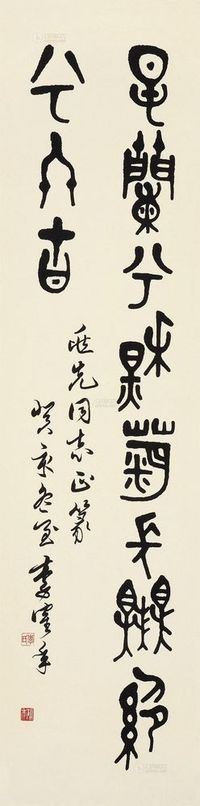 春蘭兮秋菊長無絕
兮終古
先同志正篆
癸亥冬至李鶴年